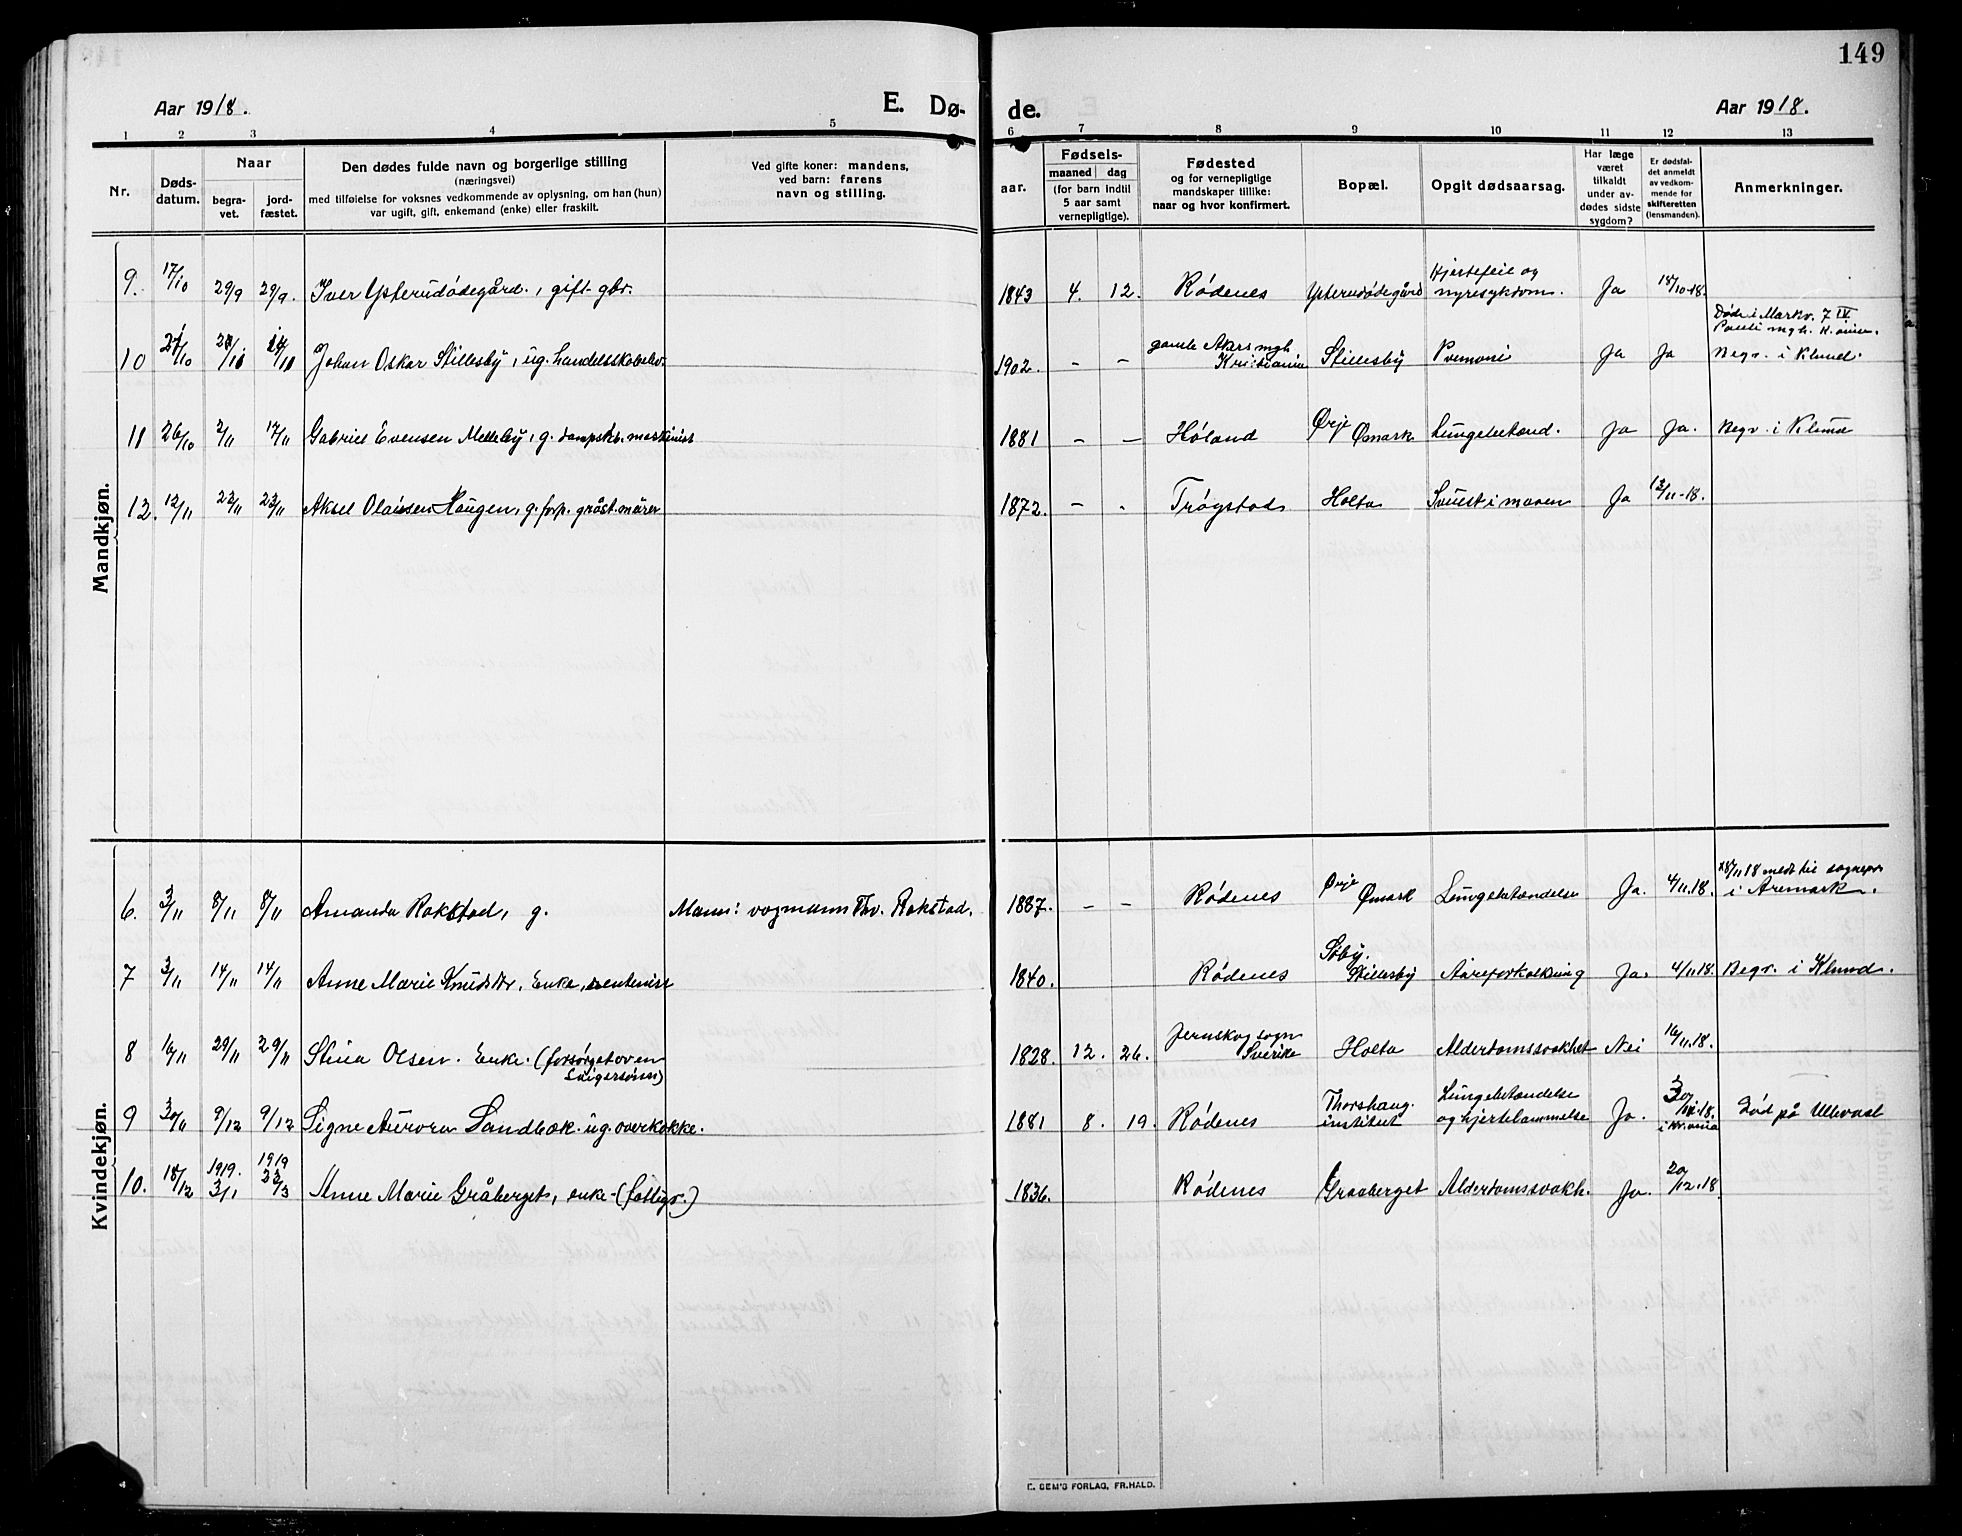 149
Aar 1918.
E. Dø-
de.
Aar 1918.
1 2 3 4 5 6 7 8 9 10 11 12 13
Nr.
Døds-
datum.
Naar
begra-
vet.
jord-
fæstet.
Den dødes fulde navn og borgerlige stilling
(næringsvei)
med tilføielse for voksnes vedkommende av oplysning, om han (hun)
var ugift, gift, enkemand (enke) eller fraskilt.
Ved gifte koner: mandens,
ved barn: farens
navn og stilling.
aar.
Fødsels-
maaned dag
(for barn indtil
5 aar samt
vernepligtige).
Fødested
og for vernepligtige
mandskaper tillike:
naar og hvor konfirmert.
Bopæl.
Opgit dødsaarsag.
Har læge
været
tilkaldt
under av-
dødes sidste
sygdom?
Er dødsfal-
det anmeldt
av vedkom-
mende for
skifteretten
(lensmanden).
Anmerkninger.
Mandkjøn.
9. 17/10 29/9 29/9. Iver Ysterudødegård., gift gbr. 1843 4. 12. Rødenes Ysterudødegård Hjertefeil og
nyresykdom. Ja 18/10-18.
Død i Markv. 7 IV
10 Johan Oskar Stillesby, ug. handelsskoleelev. 1902. - - gamle Akers mgh
Kristiania Stillesby Ja Ja Begr. i Klund.
11 26/10 2/11 17/11 Gabriel Evensen Melleby, g. dampsk. maskinist 1881 - - Høland Ørje
Ømark Lungebetænd. Ja Ja. Begr. i Klund
12. 12/11 23/11 23/11 Aksel Olaissen Haugen, g. forp. gråst.murer 1872. - - Trøgstad Holta Svulst i maven Ja 13/11-18.
Kvindekjøn.
6. 3/11 8/11 8/11 Amanda Rakstad, g. Mann: vogmann Thv. Rakstad. 1887. - - Rødenes Ørje
Ømark Lungebetændelse Ja. 4/11.18. 18/11 18 medt til sognepr.
i Aremark.
7 3/11 14/11 14/11 Anne Marie Knudsdtr. Enke, rentenist 1840. Rødenes Søby.
Stillesby Aareforkalkning Ja. 4/11 18. Begr. i Klund.
8 16/11 29/11 29/11 Stina Olsen. Enke. (forsørget av en
svigersønn) 1828. 12. 26. Jernskog sogn
Sverike Holta Alderdomssvakhet Nei 16/11.18.
9 30/11 9/12 9/12 Signe Aurora Sandbæk. ug. overkokke. 1881 8. 19. Rødenes Thorshaug.
institut Lungebetændelse
og hjertelammelse Ja.
i Kr.ania Død på Ullevaal
10. 18/12 1919. 3/1 1919 23/3 Anne Marie Gråberget, enke - (fattigv.) 1836. Rødenes Graaberget Alderdomssvakh. Ja. 20/12.18.
E. SEM'S FORLAG, FR.HALD.